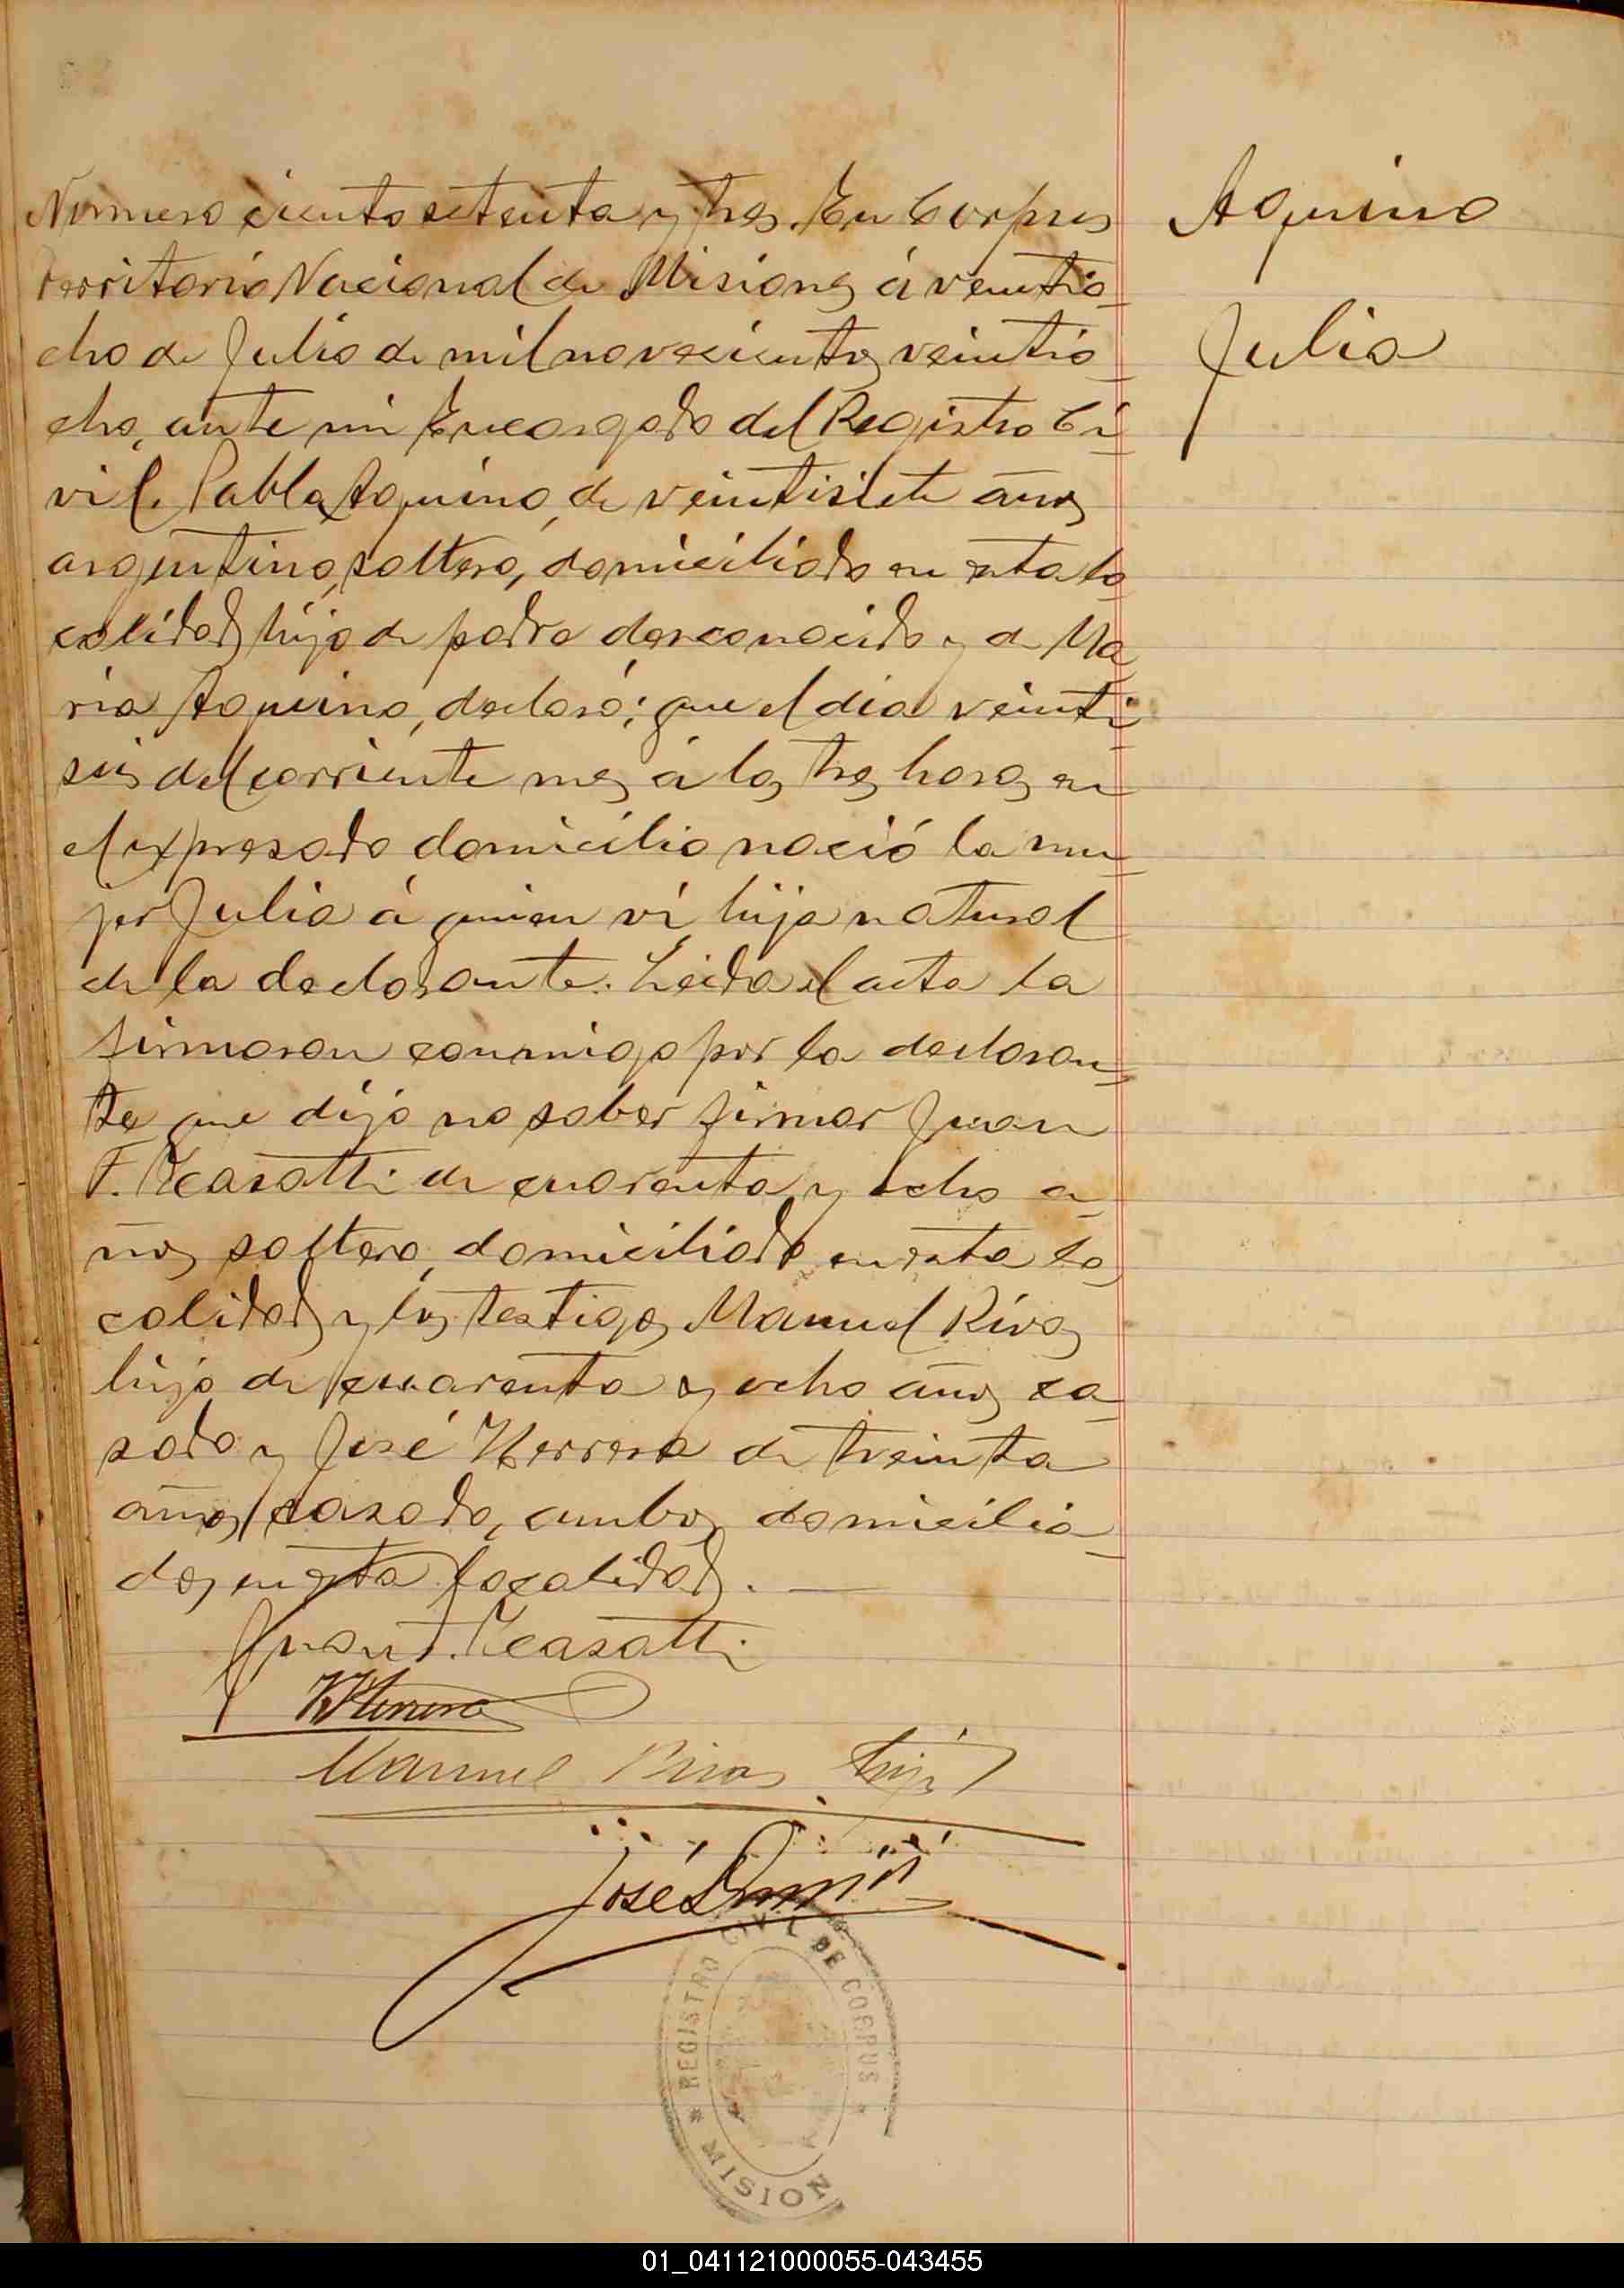 Numero ciento setenta y tres. En Corpus
Territorio Nacional de Misiones á veintio
cho de Julio de mil novecientos veintio
cho, ante mi Encargado del Registro Ci
vil, Pabla Aquino, de veintisiete años
argentina, soltera, domiciliada en esta lo
calidad, hija de padre desconocido y de Ma
ria Aquino, declaró: que el dia veinti
seis del corriente mes á las tres horas en
el expresado domicilio nació la mu
jer Julia á quien vi, hija natural
de la declarante. Leida el acta la
firmaron conmigo por la declaran
te que dijo no saber firmar Juan
F. Casatti de cuarenta y ocho a
ños soltero, domiciliado en esta lo
calidad y los testigos Manuel Rivas
hijo de cuarenta y ocho años ca
sado y José Herrera de treinta
años, casado, ambos domicilia
dos en esta localidad.
Juan F. Casatti
Herrera
Manuel Rivas hijo
José
REGISTRO CIVIL DE CORPUS
* MISION
Aquino
Julia
01_041121000055-043455